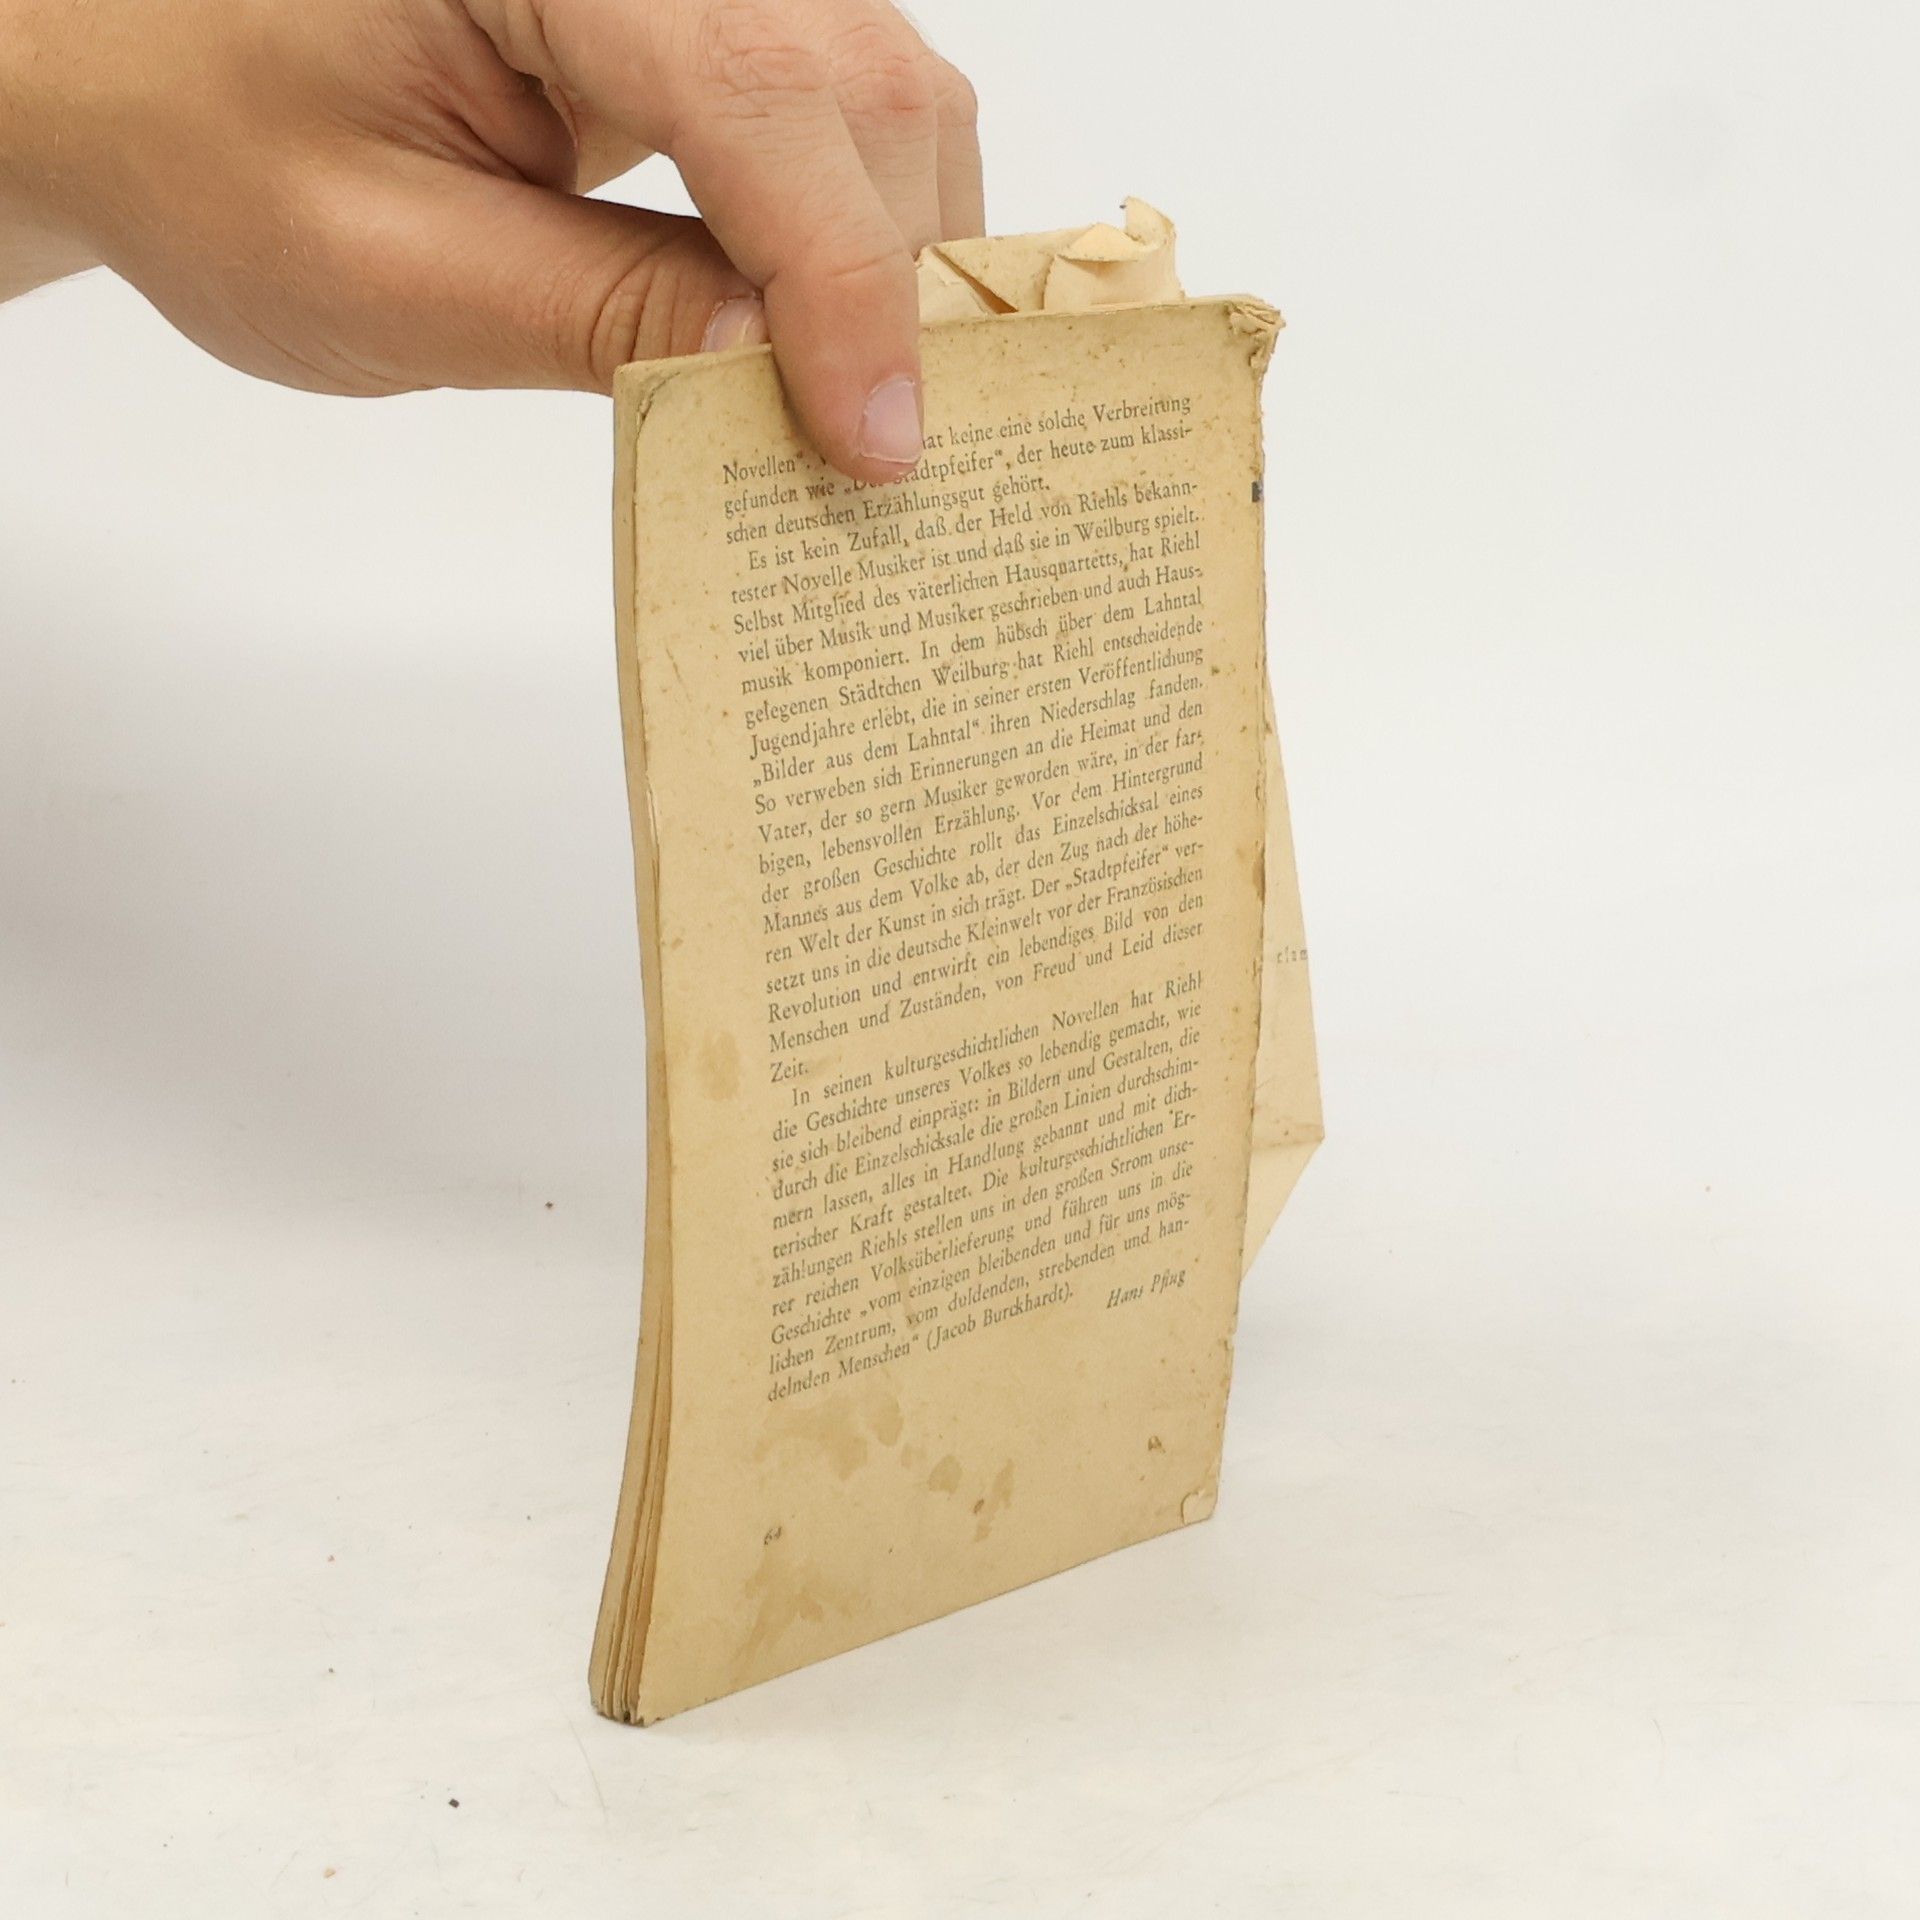 Novellen“. hat keine eine solche Verbreitung
gefunden wie „Der Stadtpfeifer“, der heute zum klassi-
schen deutschen Erzählungsgut gehört.
Es ist kein Zufall, daß der Held von Riehls bekann-
tester Novelle Musiker ist und daß sie in Weilburg spielt.
Selbst Mitglied des väterlichen Hausquartetts, hat Riehl
viel über Musik und Musiker geschrieben und auch Haus-
musik komponiert. In dem hübsch über dem Lahntal
gelegenen Städtchen Weilburg hat Riehl entscheidende
Jugendjahre erlebt, die in seiner ersten Veröffentlichung
„Bilder aus dem Lahntal“ ihren Niederschlag fanden.
So verweben sich Erinnerungen an die Heimat und den
Vater, der so gern Musiker geworden wäre, in der far-
bigen, lebensvollen Erzählung. Vor dem Hintergrund
der großen Geschichte rollt das Einzelschicksal eines
Mannes aus dem Volke ab, der den Zug nach der höhe-
ren Welt der Kunst in sich trägt. Der „Stadtpfeifer“ ver-
setzt uns in die deutsche Kleinwelt vor der Französischen
Revolution und entwirft ein lebendiges Bild von den
Menschen und Zuständen, von Freud und Leid dieser
Zeit.
In seinen kulturgeschichtlichen Novellen hat Riehl
die Geschichte unseres Volkes so lebendig gemacht, wie
sie sich bleibend einprägt: in Bildern und Gestalten, die
durch die Einzelschicksale die großen Linien durchschim-
mern lassen, alles in Handlung gebannt und mit dich-
terischer Kraft gestaltet. Die kulturgeschichtlichen Er-
zählungen Riehls stellen uns in den großen Strom unse-
rer reichen Volksüberlieferung und führen uns in die
Geschichte „vom einzigen bleibenden und für uns mög-
lichen Zentrum, vom duldenden, strebenden und han-
delnden Menschen“ (Jacob Burckhardt).
Hans Pflug
64